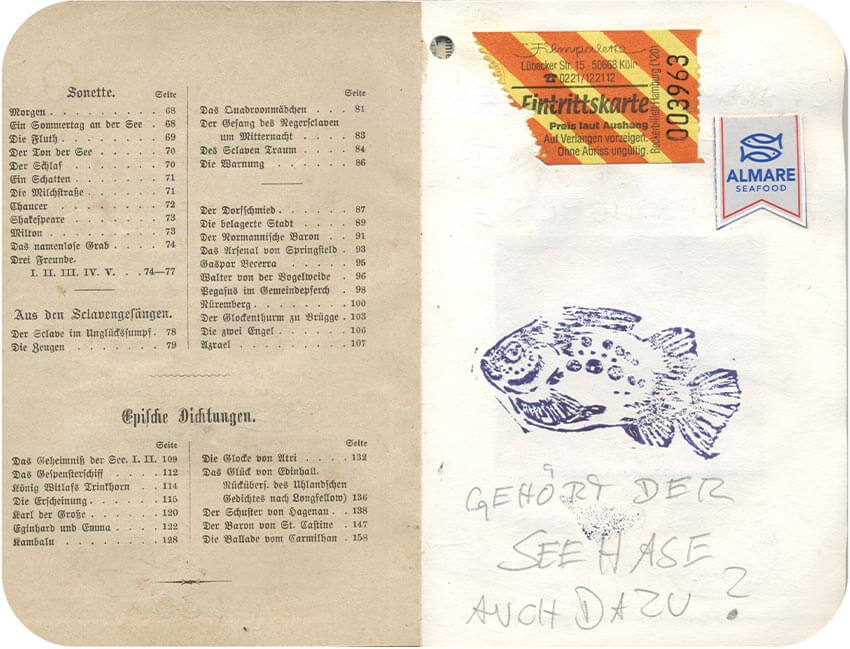 Sonette.
Seite
Morgen . . . . . . . . . 68
Ein Sommertag an der See . 68
Die Fluth . . . . . . . . 69
Der Ton der See . . . . . 70
Der Schlaf . . . . . . . 70
Ein Schatten . . . . . . 71
Die Milchstraße . . . . . 71
Chaucer . . . . . . . . 72
Shakespeare . . . . . . 73
Milton . . . . . . . . . 73
Das namenlose Grab . . . . 74
Drei Freunde.
I. II. III. IV. V. . . 74—77
Aus den Sclavengesängen.
Der Sclave im Unglückssumpf . 78
Die Zeugen . . . . . . . 79
Seite
Das Quadroonmädchen . . . . 81
Der Gesang des Negersclaven
um Mitternacht . . . . 83
Des Sclaven Traum . . . . 84
Die Warnung . . . . . . 86
Der Dorfschmied . . . . . 87
Die belagerte Stadt . . . . 89
Der Normannische Baron . . . 91
Das Arsenal von Springfield . 93
Gaspar Becerra . . . . . 95
Walter von der Vogelweide . 96
Pegasus im Gemeindepferch . 98
Nüremberg . . . . . . . 100
Der Glockenthurm zu Brügge . 103
Die zwei Engel . . . . . 106
Azrael . . . . . . . . 107
Epische Dichtungen.
Seite
Das Geheimniß der See. I. II. 109
Das Gespensterschiff . . . . 112
König Witlafs Trinkhorn . . 114
Die Erscheinung . . . . . 115
Karl der Große . . . . . 120
Eginhard und Emma . . . . 122
Kambalu . . . . . . . 128
Seite
Die Glocke von Atri . . . . 132
Das Glück von Edinhall.
Rückübers. des Uhlandschen
Gedichtes nach Longfellow) 136
Der Schuster von Hagenau . . 138
Der Baron von St. Castine . 147
Die Ballade vom Carmilhan . 158
Filmpalette
Lübecker Str. 15 · 50668 Köln
☎ 0221/122112
Eintrittskarte
Preis laut Aushang
Auf Verlangen vorzeigen.
Ohne Abriss ungültig.
Hamburg (120)
003963
ALMARE
SEAFOOD
GEHÖRT DER
SEEHASE
AUCH DAZU?